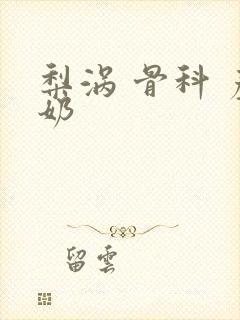 梨涡 骨科
奶
留雲